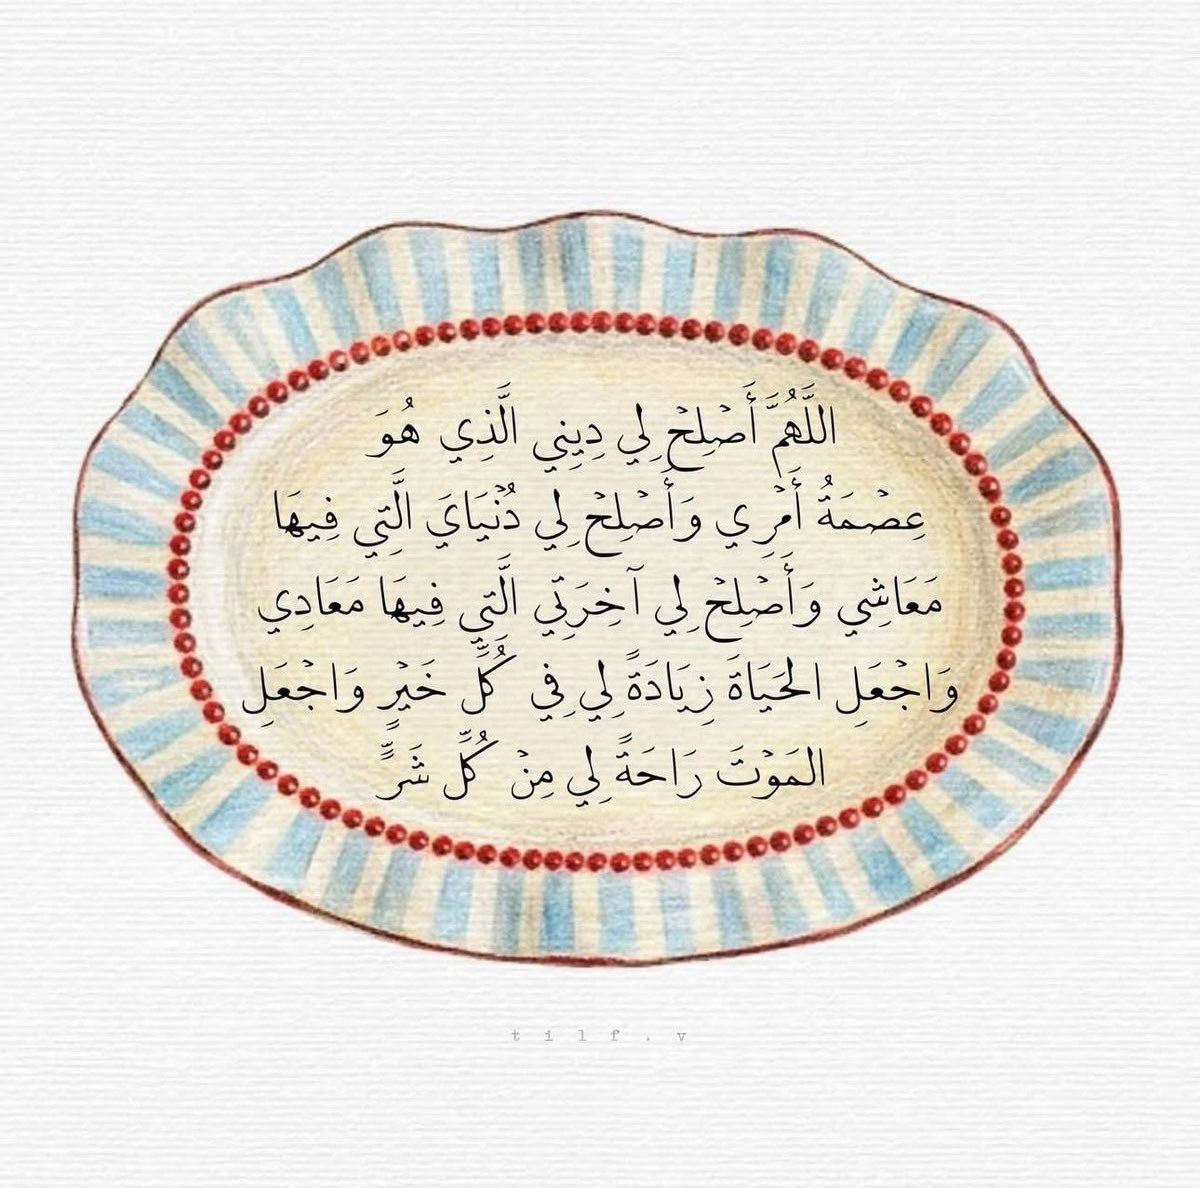 اللَّهُمَّ أَصْلِحْ لِي دِينِي الَّذِي هُوَ
عِصْمَةُ أَمْرِي وَأَصْلِحْ لِي دُنْيَايَ الَّتِي فِيهَا
مَعَاشِي وَأَصْلِحْ لِي آخِرَتِي الَّتِي فِيهَا مَعَادِي
وَاجْعَلِ الحَيَاةَ زِيَادَةً لِي فِي كُلِّ خَيْرٍ وَاجْعَلِ
المَوْتَ رَاحَةً لِي مِنْ كُلِّ شَرٍّ
tilf.v